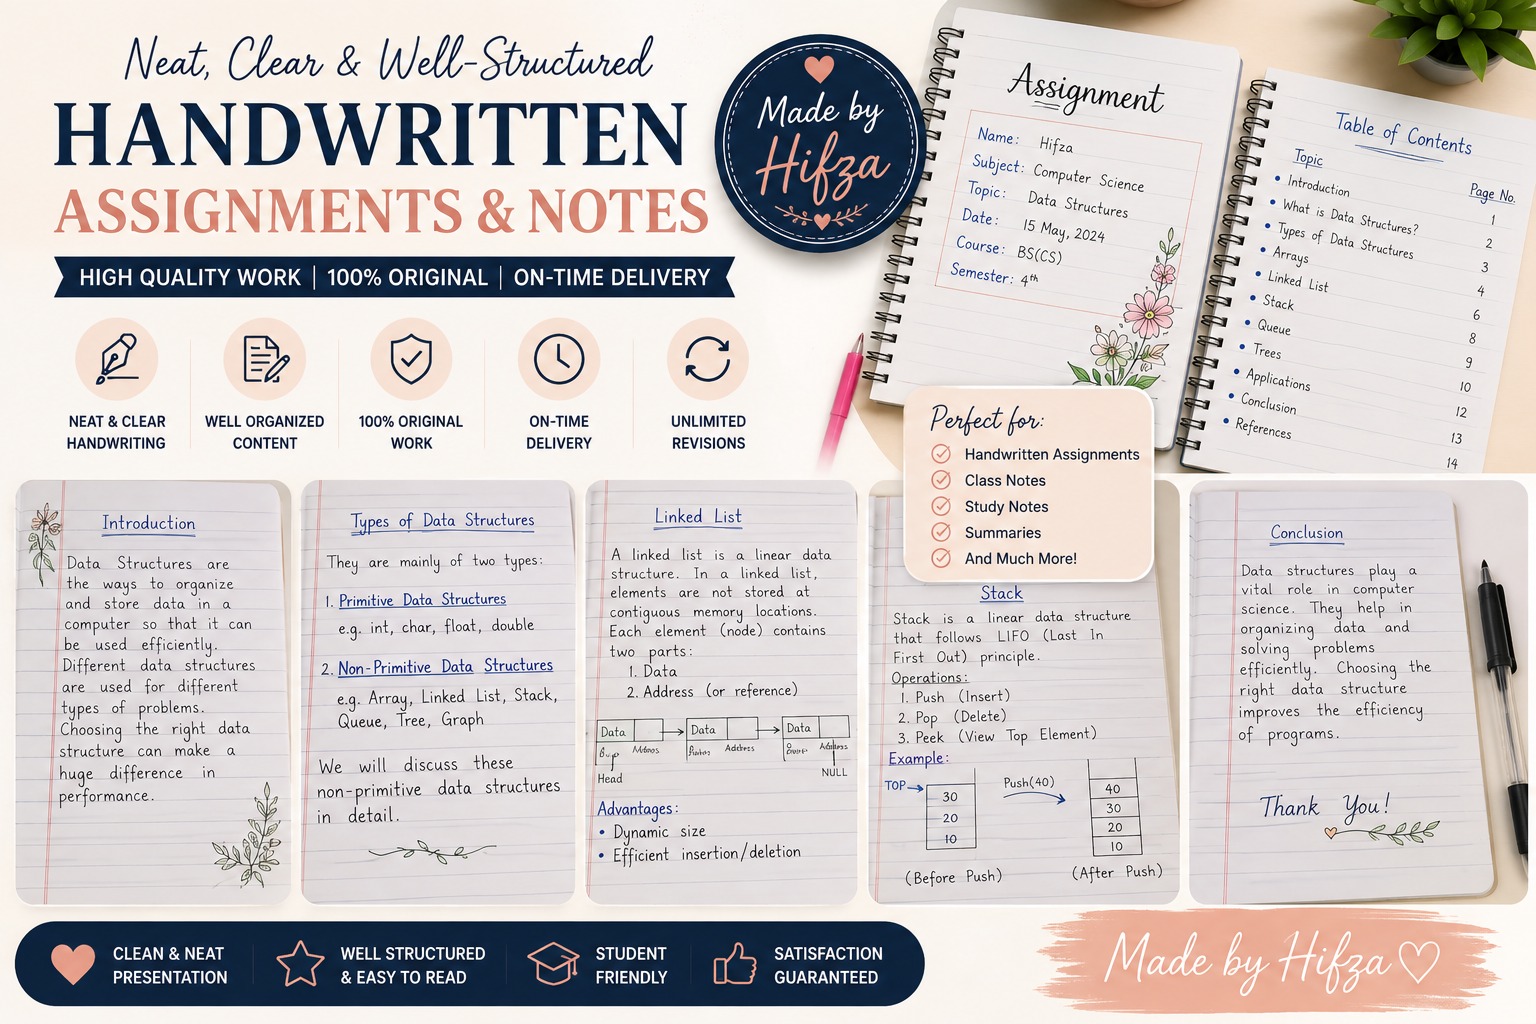 Neat, Clear & Well-Structured
HANDWRITTEN
ASSIGNMENTS & NOTES
HIGH QUALITY WORK | 100% ORIGINAL | ON-TIME DELIVERY
NEAT & CLEAR
HANDWRITING
WELL ORGANIZED
CONTENT
100% ORIGINAL
WORK
ON-TIME
DELIVERY
UNLIMITED
REVISIONS
Made by
Hifza
Assignment
Name: Hifza
Subject: Computer Science
Topic: Data Structures
Date: 15 May, 2024
Course: BS(CS)
Semester: 4th
Table of Contents
Topic Page No.
• Introduction 1
• What is Data Structures? 2
• Types of Data Structures 3
• Arrays 4
• Linked List 6
• Stack 8
• Queue 9
• Trees 10
• Applications 12
• Conclusion 13
• References 14
Perfect for:
Handwritten Assignments
Class Notes
Study Notes
Summaries
And Much More!
Introduction
Data Structures are
the ways to organize
and store data in a
computer so that it can
be used efficiently.
Different data structures
are used for different
types of problems.
Choosing the right data
structure can make a
huge difference in
performance.
Types of Data Structures
They are mainly of two types:
1. Primitive Data Structures
e.g. int, char, float, double
2. Non-Primitive Data Structures
e.g. Array, Linked List, Stack,
Queue, Tree, Graph
We will discuss these
non-primitive data structures
in detail.
Linked List
A linked list is a linear data
structure. In a linked list,
elements are not stored at
contiguous memory locations.
Each element (node) contains
two parts:
1. Data
2. Address (or reference)
Data Data Data
Address
Head
NULL
Advantages:
• Dynamic size
• Efficient insertion/deletion
Stack
Stack is a linear data structure
that follows LIFO (Last In
First Out) principle.
Operations:
1. Push (Insert)
2. Pop (Delete)
3. Peek (View Top Element)
Example:
TOP
30
20
10
(Before Push)
Push(40)
40
30
20
10
(After Push)
Conclusion
Data structures play a
vital role in computer
science. They help in
organizing data and
solving problems
efficiently. Choosing the
right data structure
improves the efficiency
of programs.
Thank You!
CLEAN & NEAT
PRESENTATION
WELL STRUCTURED
& EASY TO READ
STUDENT
FRIENDLY
SATISFACTION
GUARANTEED
Made by Hifza